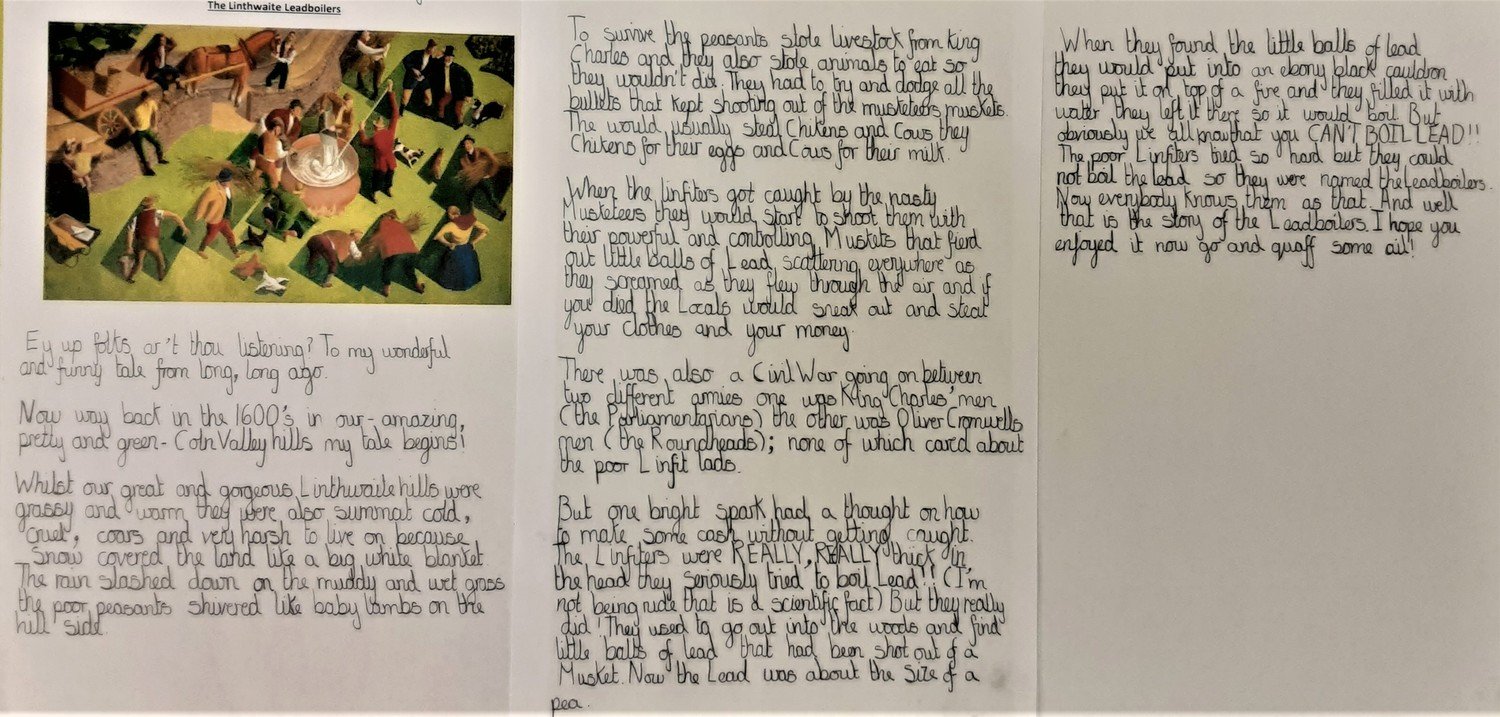 The Linthwaite Leadboilers
Ey up folks ar't thou listening? To my wonderful
and funny tale from long, long ago.
Now way back in the 1600's in our-amazing,
pretty and green-Coln Valley hills my tale begins!
Whilst our great and gorgeous Linthwaite hills were
grassy and warm they were also summat cold,
cruel, coars and very harsh to live on because
snow covered the land like a big white blanket
The rain slashed down on the muddy and wet grass
the poor peasants shivered like baby lambs on the
hill side.
To survive the peasants stole livestock from king
Charles and they also stole animals to eat so
they wouldn't die. They had to try and dodge all the
bullets that kept shooting out of the musteteers muskets.
The would usually steal Chikens and Cows they
Chikens for their eggs and Cows for their milk.
When the linfiters got caught by the nasty
Musteteers they would start to shoot them with
their powerful and controlling Muskets that fierd
out little balls of Lead scattering everywhere as
they screamed as they flew through the air and if
you died the Locals would sneak out and steal
your clothes and your money.
There was also a Civil War going on between
two different armies one was King Charles' men
(the Parliamentarians) the other was Oliver Cromwells
men (the Roundheads); none of which car'd about
the poor Linfit lads.
But one bright spark had a thought on how
to make some cash without getting caught.
The Linfiters were REALLY, REALLY thick in
the head they seriously tried to boil Lead!! (I'm
not being rude that is a scientific fact) But they really
did! They used to go out into the woods and find
little balls of lead that had been shot out of a
Musket. Now the Lead was about the size of a
pea.
When they found the little balls of lead
they would put into an ebony black cauldron
they put it on top of a fire and they filled it with
water they left it there so it would boil. But
obviously we all know that you CAN'T BOIL LEAD!!
The poor Linfiters tried so hard but they could
not boil the lead so they were named the Leadboilers.
Now everybody knows them as that. And well
that is the story of the Leadboilers. I hope you
enjoyed it now go and quaff some ail!